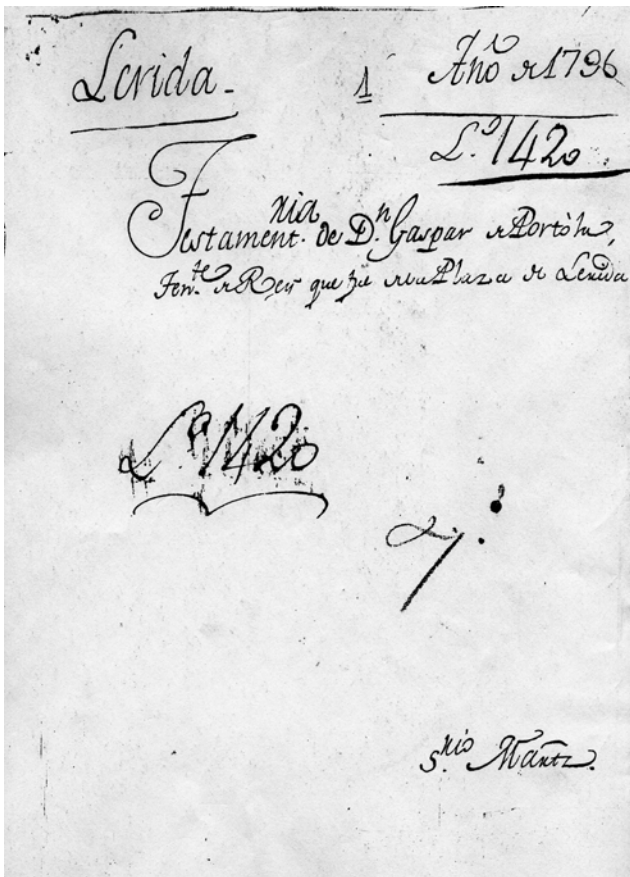 Lerida. 1 Año de 1796
L.º 1420
Testament.ria de D.n Gaspar de Portòla,
Ten.te de Rey que fue de la Plaza de Lerida
L.º 1420
S.rio Martz.